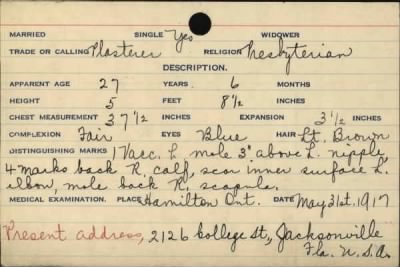 MARRIED SINGLE Yes WIDOWER
TRADE OR CALLING Plasterer RELIGION Presbyterian
DESCRIPTION.
APPARENT AGE 27 YEARS 6 MONTHS
HEIGHT 5 FEET 8 1/2 INCHES
CHEST MEASUREMENT 37 1/2 INCHES EXPANSION 3 1/2 INCHES
COMPLEXION Fair EYES Blue HAIR Lt. Brown
DISTINGUISHING MARKS 1 Vacc. L mole 3" above L. nipple,
4 marks back R. calf, scar inner surface L.
elbow, mole back R. scapula.
MEDICAL EXAMINATION. PLACE Hamilton Ont. DATE May 31st. 1917
Present address, 2126 College St., Jacksonville
Fla. U.S.A.